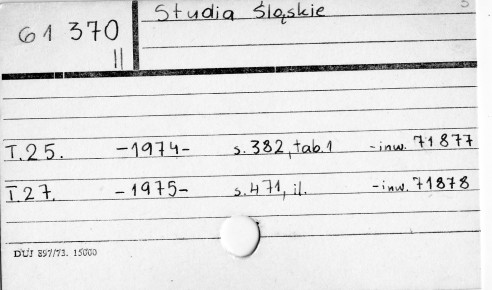 Studia Śląskie
61 370
II
T.25. -1974- s.382, tab.1 -inw. 71877
T.27. -1975- s.471, il. -inw. 71878
DUJ 897/73. 15000